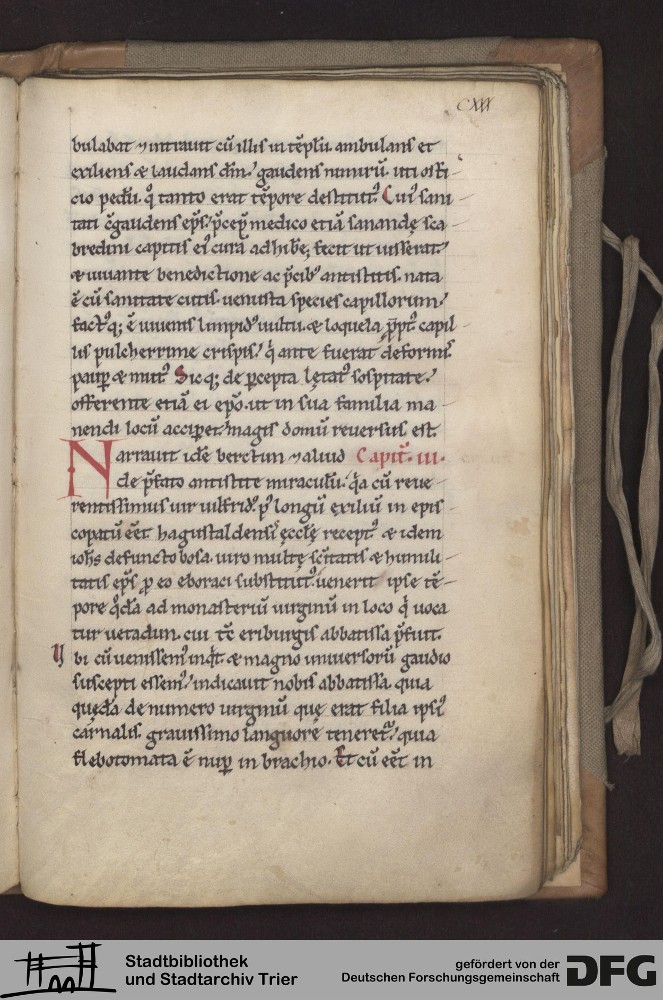 CXXI
bulabat ⁊ intrauit cū illis in tēplū. ambulans et
exiliens & laudans dm̄. gaudens nimirū. uti offi
cio pedū. q̇ tanto erat tēpore destitutꝰ. Cuiꝰ sani
tati c̄gaudens ep̄s. p̄cep̄ medico etiā sanandę sca
bredini capitis eiꝰ curā adhibe; fecit ut iusserat.
& iuuante benedictione ac p̄cibꝰ antistitis. nata
ē cū sanitate cutis. uenusta species capillorum.
factꝰq; ē iuuenis limpidꝰ uultu. & loquela p̄ptꝰ. capil
lis pulcherrime crispis. q̇ ante fuerat deformis.
paup̄ & mutꝰ. Sicq; de p̄cepta lętatꝰ sospitate.
offerente etiā ei ep̄o. ut in sua familia ma
nendi locū acciperet. magis domū reuersus est.
Narrauit idē berctun ⁊ aliud Capit̄. III.
de p̄fato antistite miraculū. q̇a cū reue
rentissimus uir uilfridꝰ. p̄ longū exiliū in epis
copatū eēt hagustaldensis ęcclę receptꝰ. & idem
ioh̄s defuncto bosa. uiro multę sc̄itatis & humili
tatis ep̄s p̄ eo eboraci substitutꝰ. uenerit ipse tē
pore q̇dā ad monasteriū uirginū in loco q̇ uoca
tur uetadun. cui tc̄ eriburgis abbatissa p̄fuit.
Ubi cū uenissemꝰ inq̇t & magno uniuersorū gaudio
suscepti essemꝰ. indicauit nobis abbatissa. quia
quędā de numero uirginū quę erat filia ipsiꝰ
carnalis. grauissimo languore teneret̄. quia
flebotomata ē nup̄ in brachio. Et cū eēt in
Stadtbibliothek
und Stadtarchiv Trier
gefördert von der
Deutschen Forschungsgemeinschaft
DFG